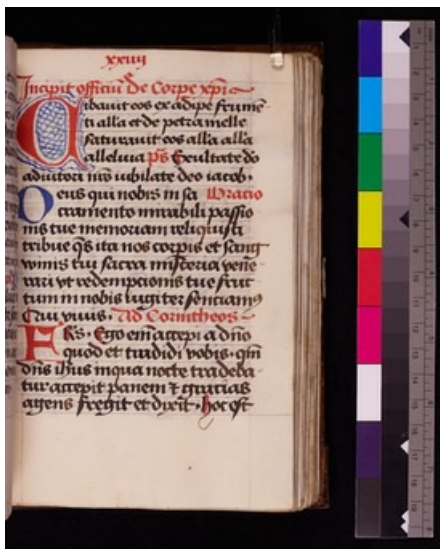 xxiiij
Incipit officiū de Corpe xp̄i
Cibavit eos ex adipe frumē
ti alla et de petra melle
saturavit eos alla alla
alleluia ps̄ Exultate do
adiutori nr̄o iubilate deo iacob.
Deus qui nobis in sa Oracio
cramento mirabili passio
nis tue memoriam reliquisti
tribue qs̄ ita nos corpis et sang
winis tui sacra misteria vene
rari vt redempcionis tue fruc
tum in nobis iugiter senciamꝰ
Qui viuis. Ad Corintheos
Fr̄s. Ego em̄ accepi a dn̄o
quod et tradidi vobis. qm̄
dn̄s ih̄us in qua nocte tradeba
tur accepit panem ⁊ gracias
agens fregit et dixit. hoc est